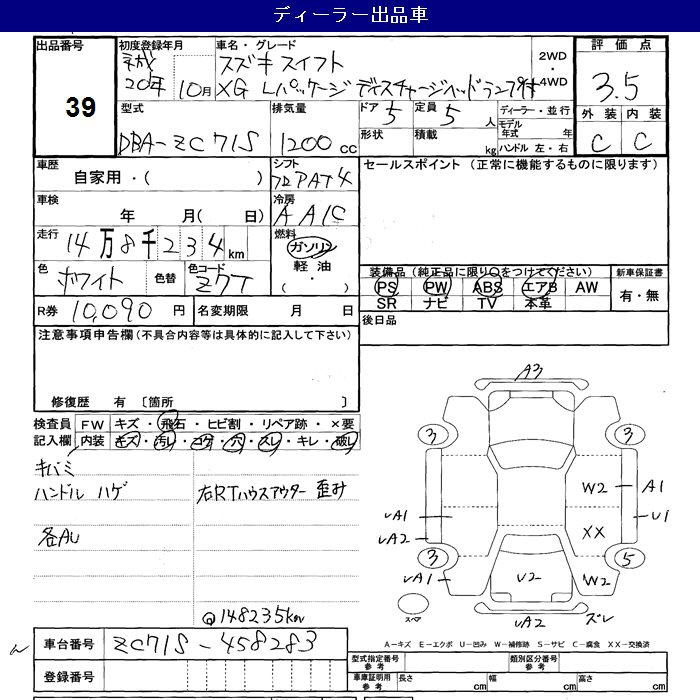 ディーラー出品車
出品番号
39
初度登録年月
平成
20年 10月
車名・グレード
スズキ スイフト
XG Lパッケージ ディスチャージヘッドランプ付
2WD
・
4WD
評価点
3.5
外装 内装
C C
型式
DBA-ZC71S
排気量
1200 cc
ドア 5
定員 5 人
形状
積載 kg
ディーラー・並行
モデル年式 年
ハンドル 左・右
車歴
自家用・( )
シフト
フロアAT4
セールスポイント (正常に機能するものに限ります)
車検
年 月( 日)
冷房
AAC
走行
14万8千234km
燃料
ガソリン
軽油
・( )
色
ホワイト
色替
色コード
Z7T
装備品(純正品に限り○をつけてください)
PS PW ABS エアB AW
SR ナビ TV 本革
新車保証書
有・無
R券 10,090 円
名変期限 月 日
後日品
注意事項申告欄(不具合内容等は具体的に記入して下さい)
修復歴 有 〔箇所 〕
検査員
記入欄
FW キズ・飛石・ヒビ割・リペア跡・×要
内装 キズ・汚れ・コゲ・穴・スレ・キレ・破れ
キバミ
ハンドル ハゲ
右RTハウスアウター 歪み
各AU
@148235km
A3
3 3
W2 A1
UA1 U1
UA2 XX
3 5
UA1 U2 W2
UA2 ズレ
スペア
A-キズ E-エクボ U-凹み W-補修跡 S-サビ C-腐食 XX-交換済
車台番号 ZC71S-458283
登録番号
型式指定番号
参考
類別区分番号
参考
車庫証明用
参考
長さ cm
幅 cm
高さ cm